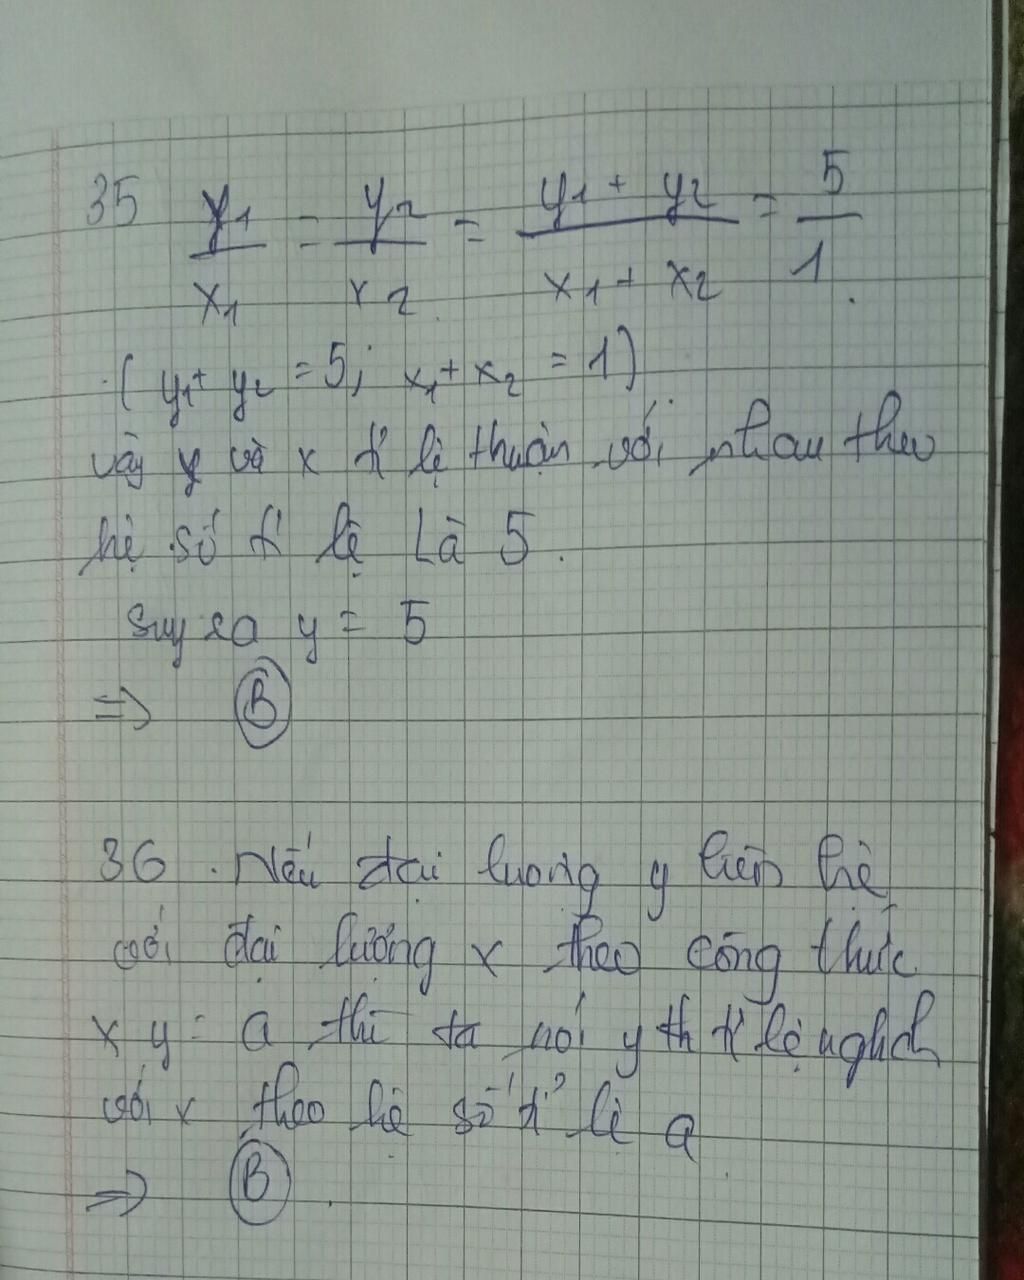 35 y1/x1 = y2/x2 = y1 + y2/x1 + x2 = 5/1.
( y1+ y2 = 5; x1+ x2 = 1)
vậy y và x tỉ lệ thuận với nhau theo
hệ số tỉ lệ Là 5.
Suy ra y = 5
=> B
36. Nếu đại lượng y liên hệ
với đại lượng x theo công thức
x y = a thì ta nói y th tỉ lệ nghịch
với x theo hệ số tỉ lệ a
=> B.